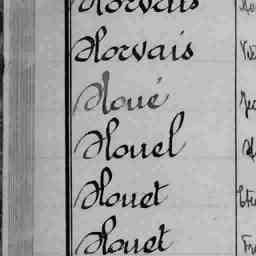 Horvais
Horvais
Houé
Houel
Houet
Houet